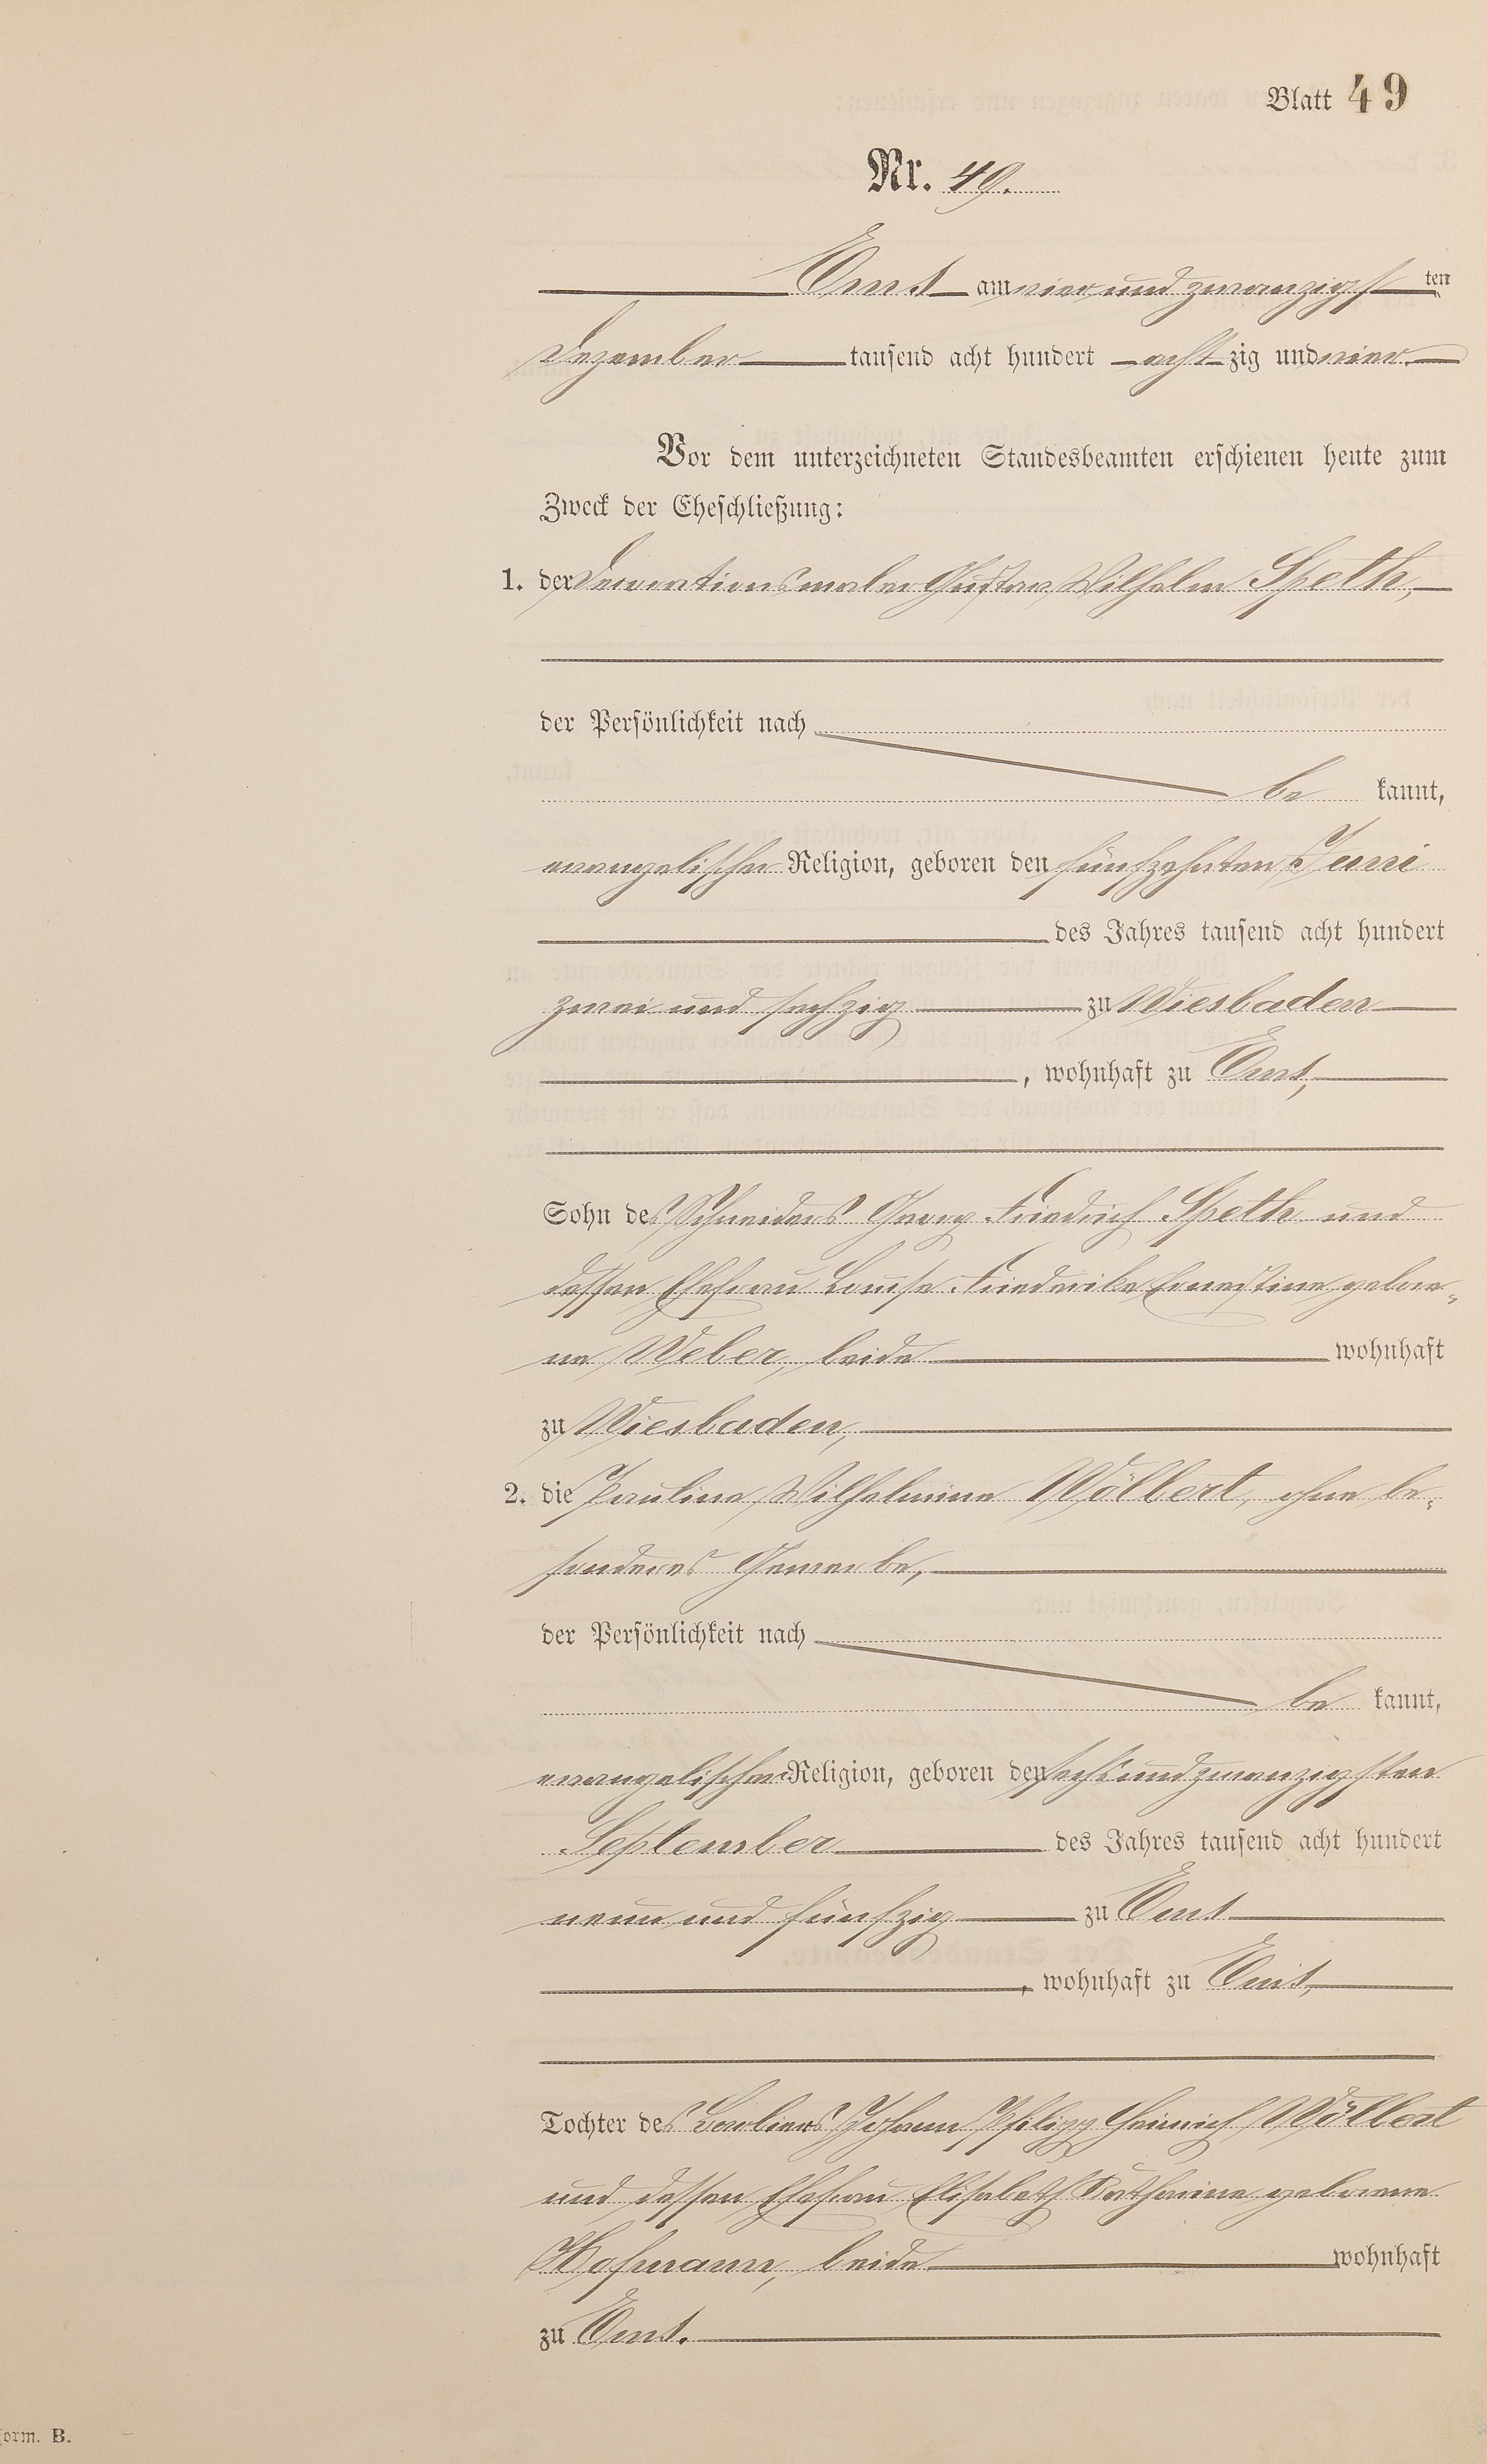 Blatt 49
Nr. 49.
Ems am vier und zwanzigsten
Dezember tausend acht hundert acht zig und vier.
Vor dem unterzeichneten Standesbeamten erschienen heute zum
Zweck der Eheschließung:
1. der Decorationsmaler Gustav Wilhelm Speth,
der Persönlichkeit nach
be kannt,
evangelischer Religion, geboren den fünfzehnten Juni
des Jahres tausend acht hundert
zwei und sechzig zu Wiesbaden
, wohnhaft zu Ems,
Sohn des Schneiders Georg Friedrich Speth und
dessen Ehefrau Louise Friederike Ernestine gebore-
ne Weber, beide wohnhaft
zu Wiesbaden,
2. die Pauline Wilhelmine Wölbert, ohne be-
sonderes Gewerbe,
der Persönlichkeit nach
be kannt,
evangelischer Religion, geboren den sechsundzwanzigsten
September des Jahres tausend acht hundert
neun und fünfzig zu Ems
, wohnhaft zu Ems,
Tochter des Johann Philipp Heinrich Wölbert
und dessen Ehefrau Elisabeth Katharine geborene
Hofmann, beide wohnhaft
zu Ems.
Form. B.